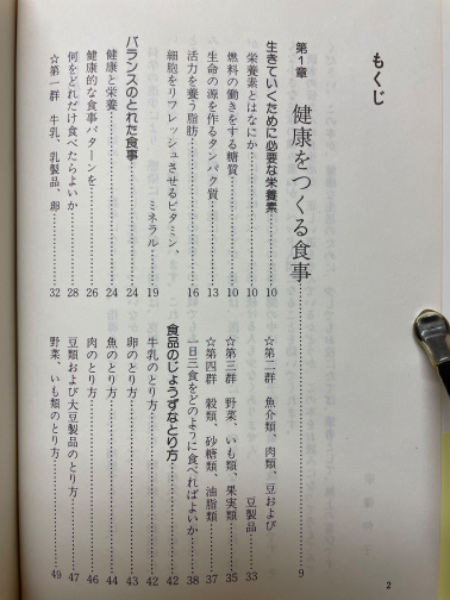 もくじ
第1章 健康をつくる食事……9
生きていくために必要な栄養素……10
栄養素とはなにか……10
燃料の働きをする糖質……10
生命の源を作るタンパク質……13
活力を養う脂肪……16
細胞をリフレッシュさせるビタミン、
ミネラル……19
バランスのとれた食事……24
健康と栄養……24
健康的な食事パターンを……26
何をどれだけ食べたらよいか……28
☆第一群 牛乳、乳製品、卵……32
☆第二群 魚介類、肉類、豆および
豆製品……33
☆第三群 野菜、いも類、果実類……35
☆第四群 穀類、砂糖類、油脂類……37
一日三食をどのように食べればよいか……38
食品のじょうずなとり方……42
牛乳のとり方……42
卵のとり方……43
魚のとり方……44
肉のとり方……46
豆類および大豆製品のとり方……47
野菜、いも類のとり方……49
2